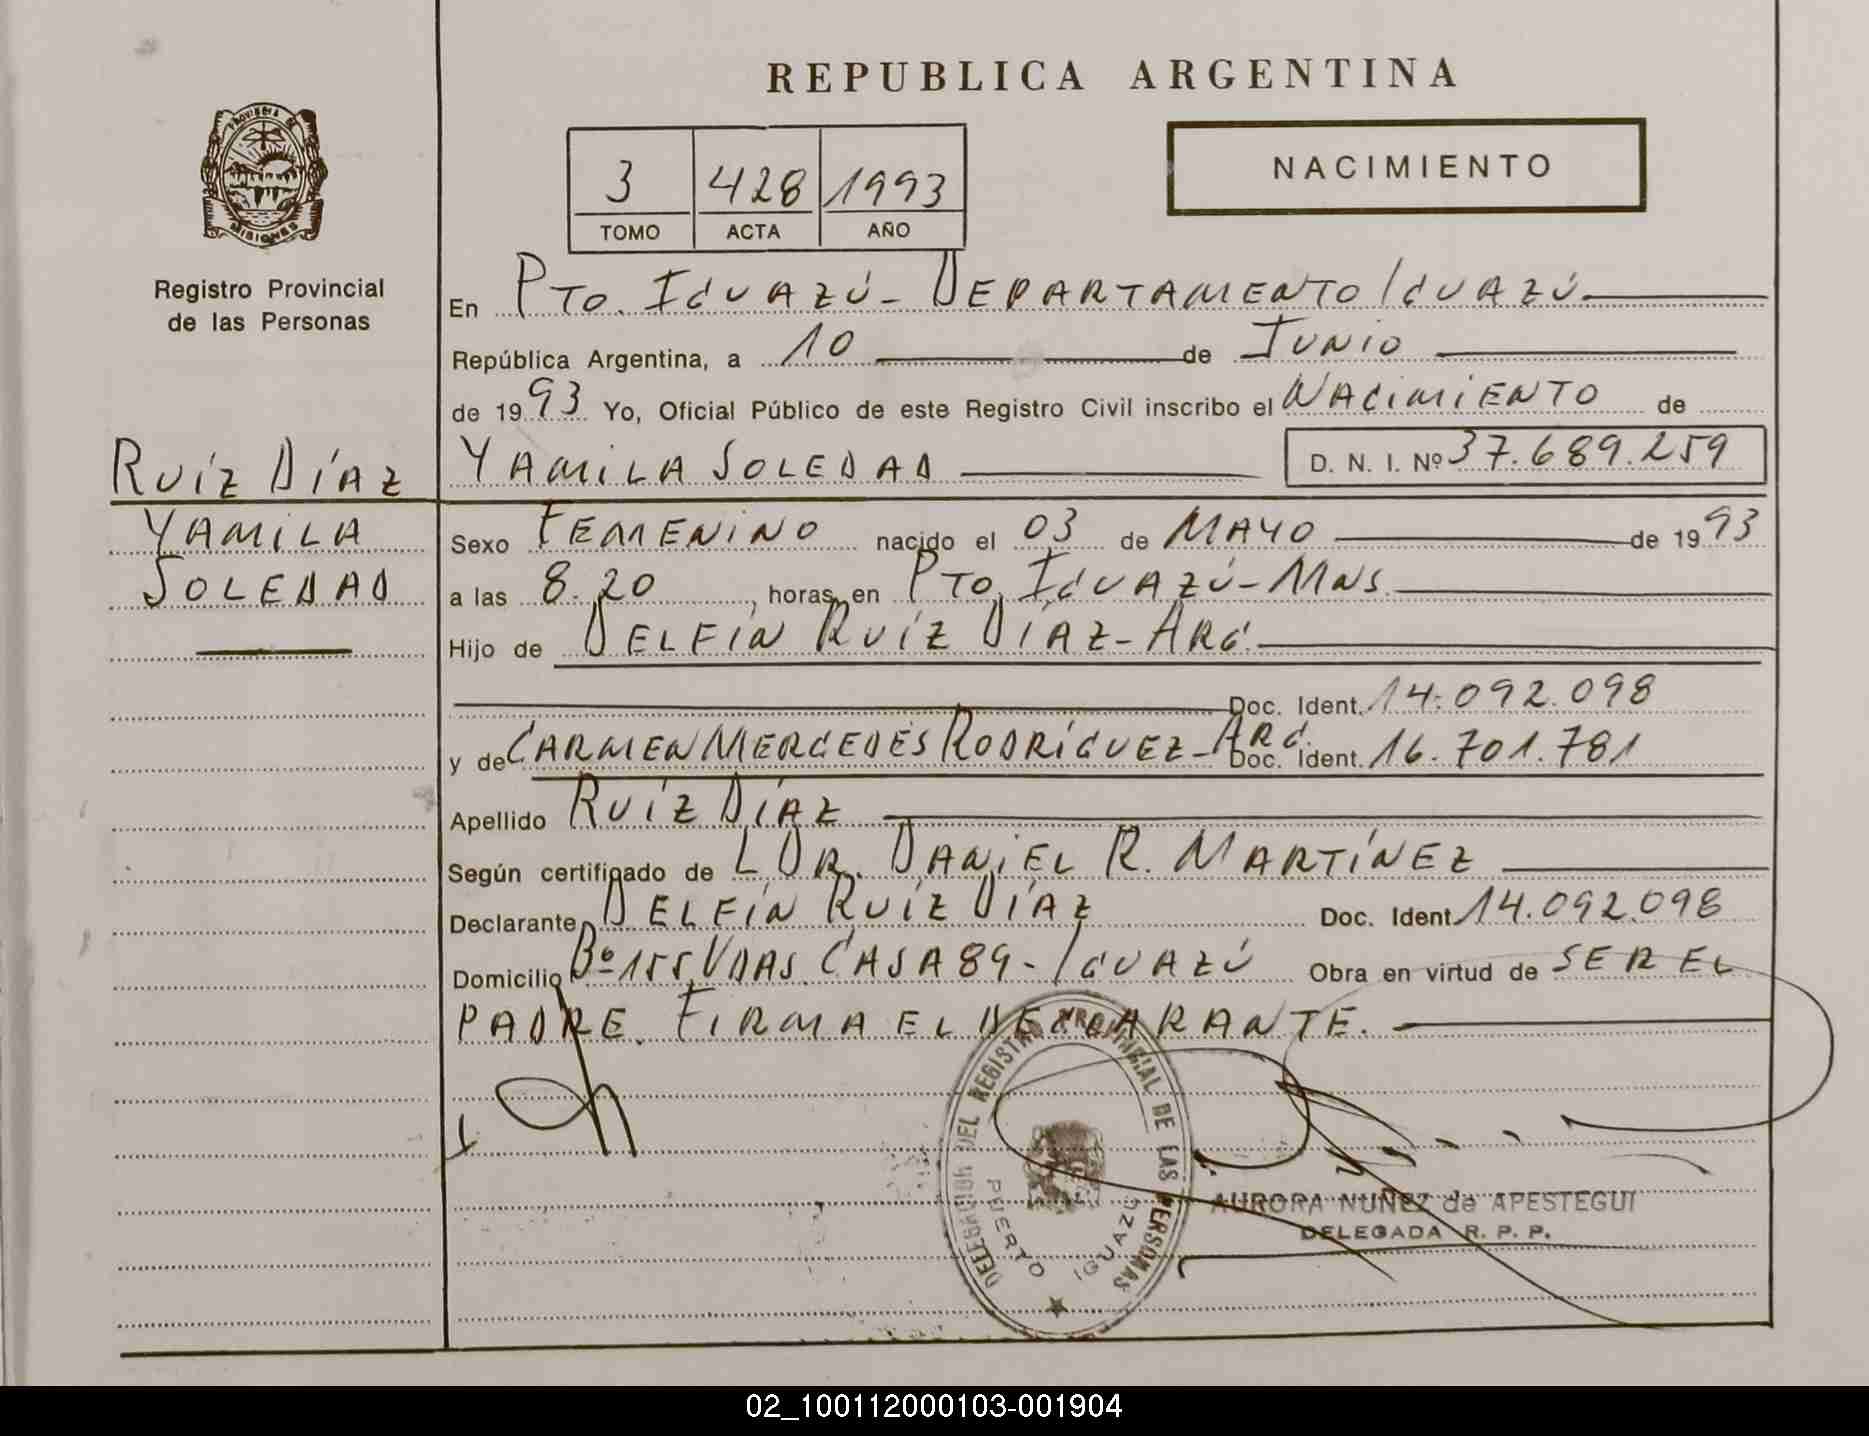 REPUBLICA ARGENTINA
PROVINCIA DE
MISIONES
Registro Provincial
de las Personas
3 428 1993
TOMO ACTA AÑO
NACIMIENTO
En PTO. IGUAZÚ - DEPARTAMENTO IGUAZÚ
República Argentina, a 10 de JUNIO
de 1993 Yo, Oficial Público de este Registro Civil inscribo el NACIMIENTO de
YAMILA SOLEDAD D. N. I. Nº 37.689.259
RUÍZ DÍAZ
YAMILA
SOLEDAD
Sexo FEMENINO nacido el 03 de MAYO de 1993
a las 8.20, horas, en PTO. IGUAZÚ - MNS.
Hijo de DELFÍN RUÍZ DÍAZ - ARG.
Doc. Ident. 14.092.098
y de CARMEN MERCEDES RODRÍGUEZ - ARG. Doc. Ident. 16.701.781
Apellido RUÍZ DÍAZ
Según certificado de L DR. DANIEL R. MARTÍNEZ
Declarante DELFÍN RUÍZ DÍAZ Doc. Ident. 14.092.098
Domicilio Bº 155 VDAS. CASA 89 - IGUAZÚ Obra en virtud de SER EL
PADRE. FIRMA EL DECLARANTE.
DELEGACION DEL REGISTRO PROVINCIAL DE LAS PERSONAS
PUERTO IGUAZU
AURORA NUÑEZ de APESTEGUI
DELEGADA R. P. P.
02_100112000103-001904